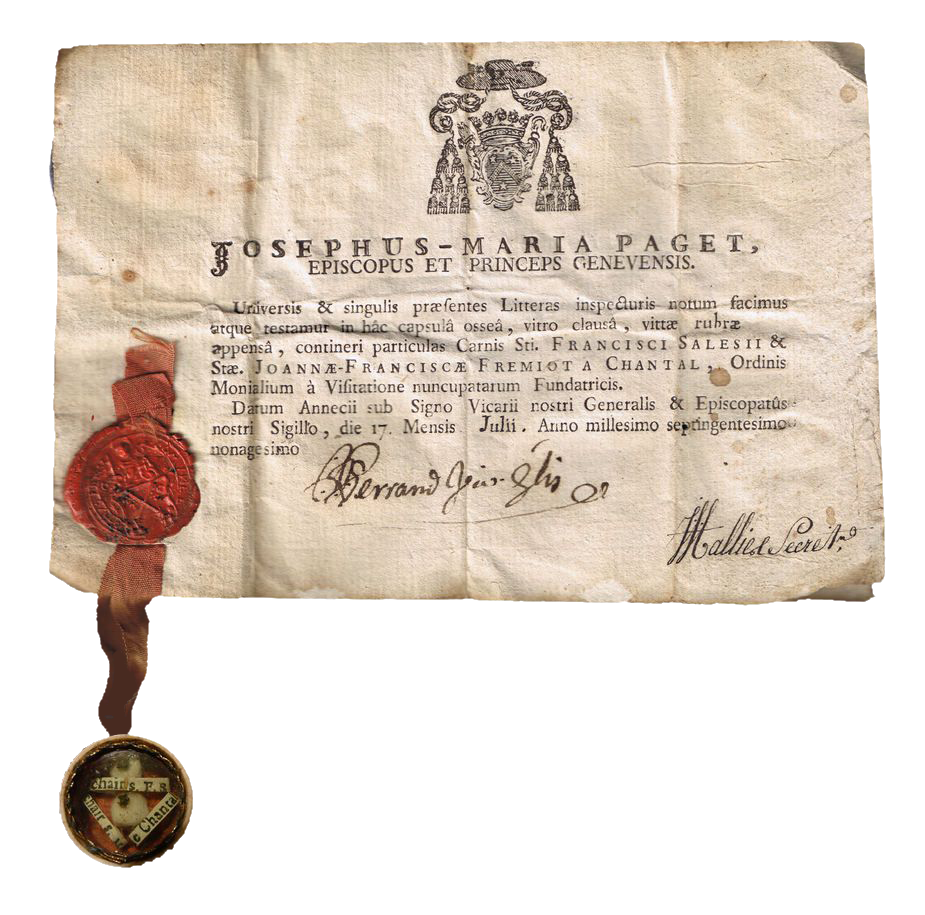 JOSEPHUS-MARIA PAGET,
EPISCOPUS ET PRINCEPS GENEVENSIS.
Universis & singulis præsentes Litteras inspecturis notum facimus
atque testamur in hâc capsulâ osseâ, vitro clausâ, vittæ rubræ
appensâ, contineri particulas Carnis Sti. FRANCISCI SALESII &
Stæ. JOANNÆ-FRANCISCÆ FREMIOT A CHANTAL, Ordinis
Monialium à Visitatione nuncupatarum Fundatricis.
Datum Annecii sub Signo Vicarii nostri Generalis & Episcopatûs
nostri Sigillo, die 17. Mensis Julii. Anno millesimo septingentesimo
nonagesimo
chair s. F. S
chair s. Chantal